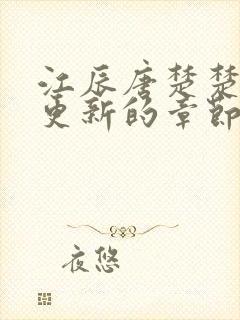 江辰唐楚楚
更新的章節
夜悠